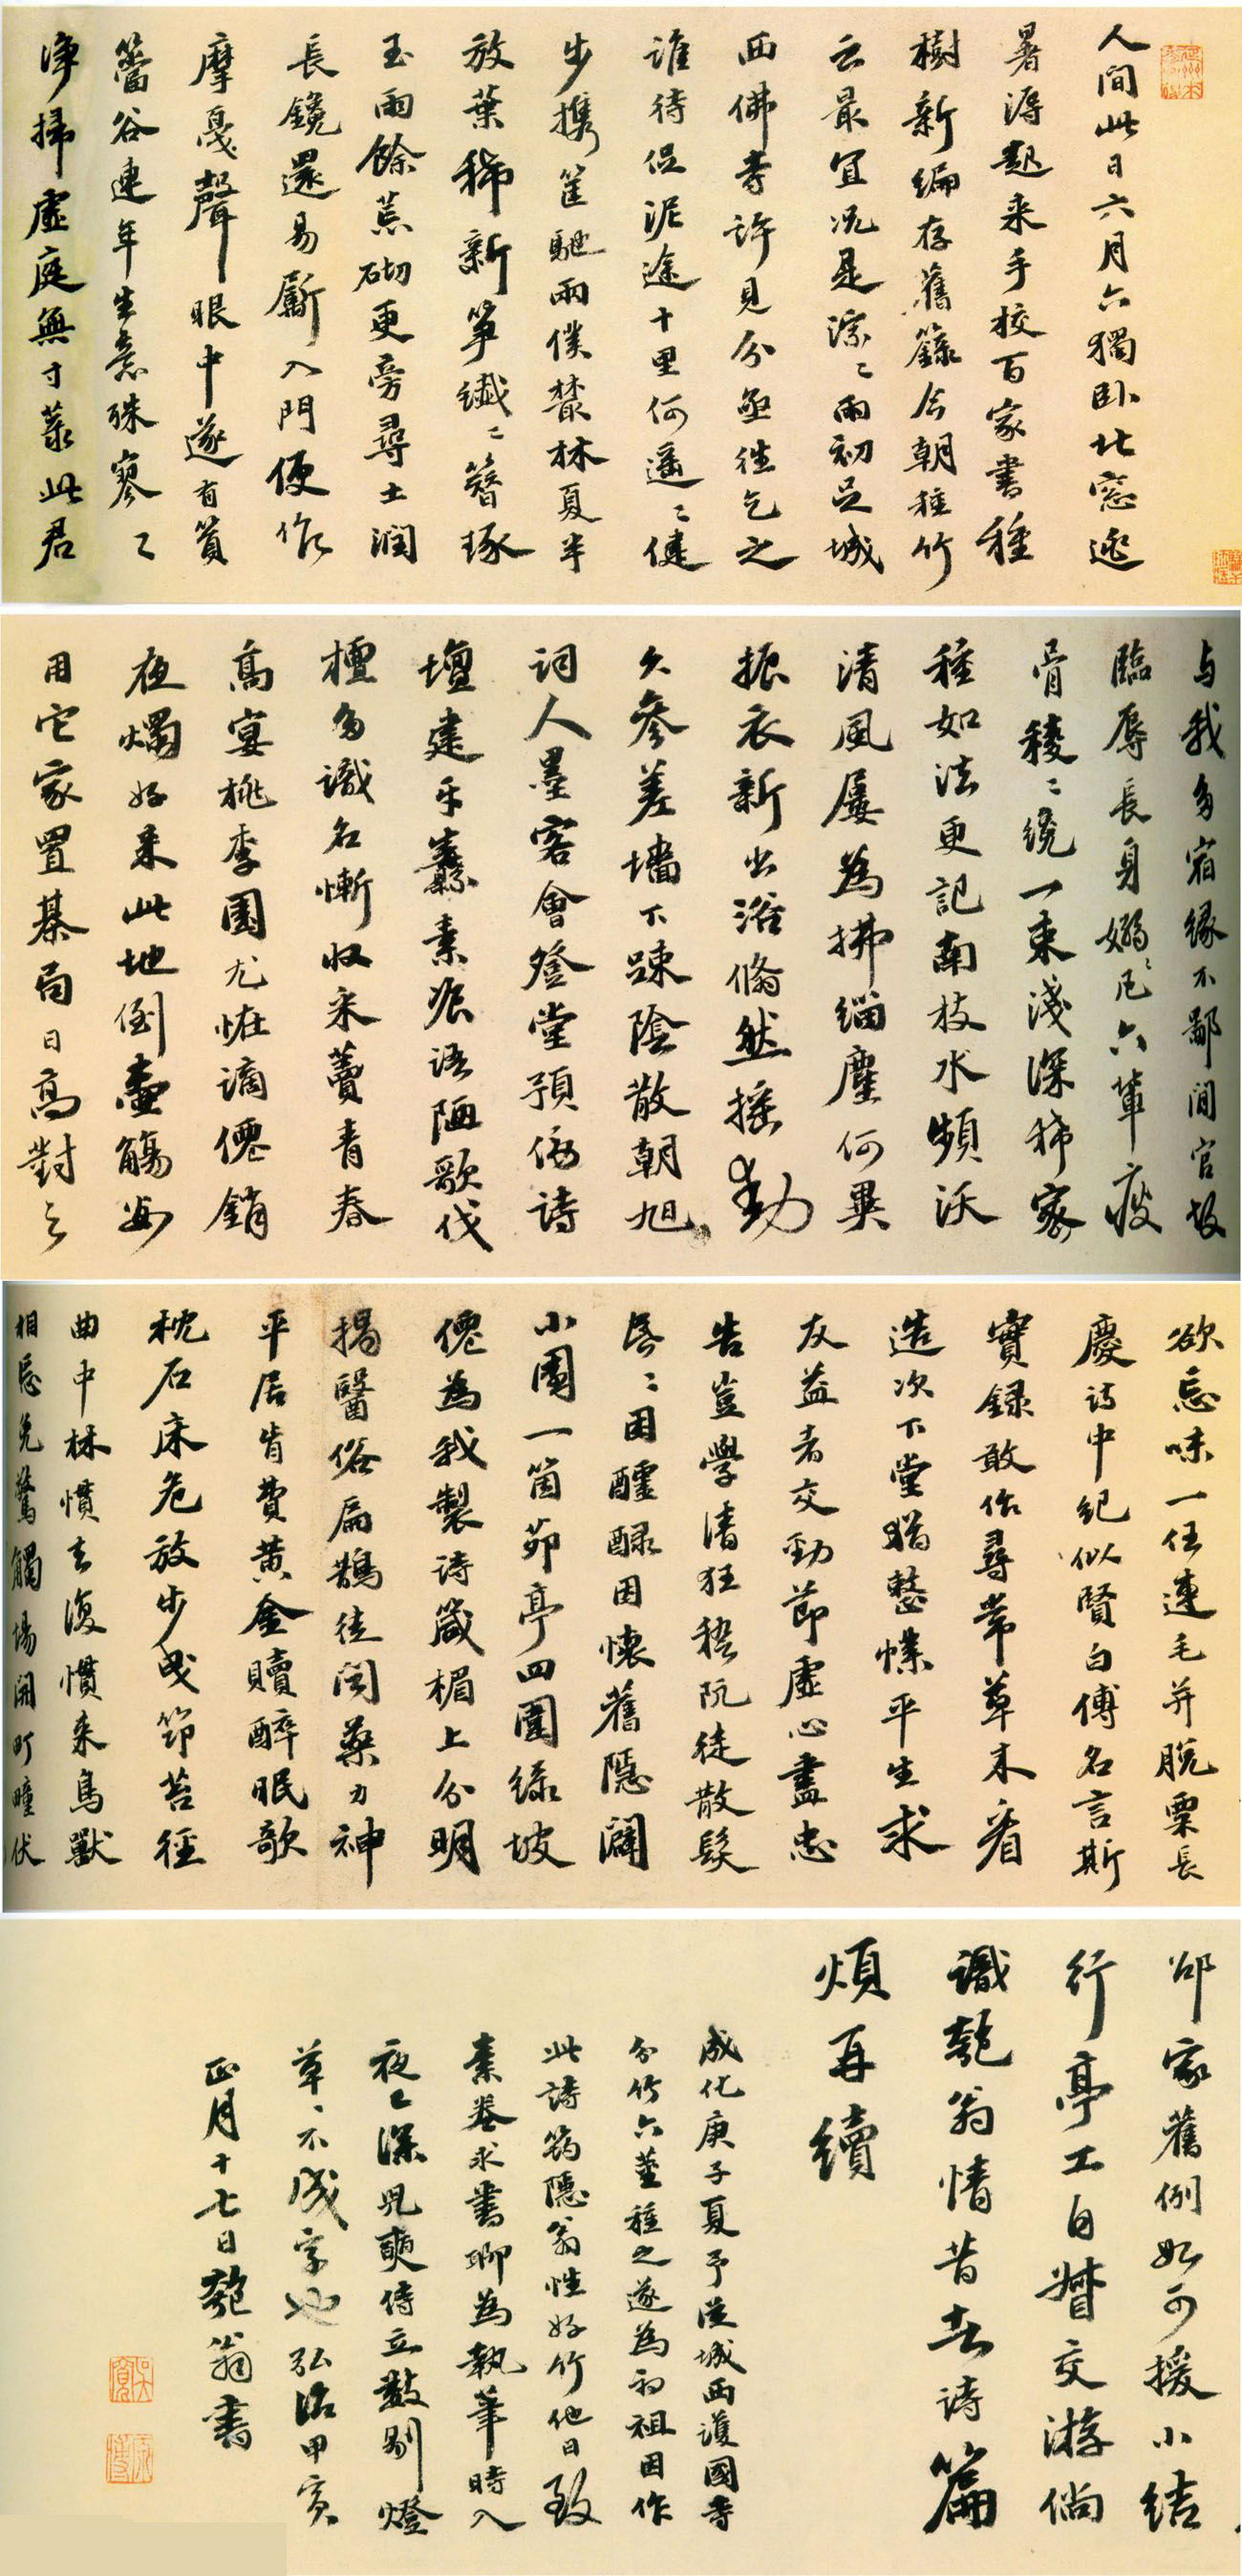 人間此日六月六獨卧北窓逃
暑溽起来手校百家書種
樹新編存舊籙今朝種竹
云最宜况是淙〻雨初足城
西佛寺許見分亟往乞之
誰待促泥途十里何遥〻健
步携筐馳兩僕叢林夏半
放葉稀新筝纖〻簪琢
玉雨餘荒砌更旁尋土潤
長鑱還易斸入門便作
摩戛聲眼中遂有篔
簹谷連年生意殊寥〻
净掃虚庭無寸菉此君
与我多宿緣不鄙閒官故
臨辱長身嫋〻凡六輩瘦
骨稜〻繞一束淺深稀密
種如法更記南枝水頻沃
清風屢為拂緇塵何異
振衣新出浴翛然摇動
久參差墻下踈陰散朝旭
詞人墨客會登堂預俻詩
壇建牙纛素飱語陋歌伐
檀多識名慚收采藚青春
高宴桃李園尤恠謫僊銷
夜燭好来此地倒壺觴毋
用它家置棊局日高對之
欲忘味一任連毛并脱粟長
慶詩中紀似賢白傅名言斯
實録敢作尋常草木看
造次下堂猶整幞平生求
友益者交勁節虚心盡忠
告豈學清狂嵇阮徒散髮
昏〻困醽醁因懷舊隱闢
小園一箇茆亭四圍緑坡
僊為我製詩箴楣上分明
揭醫俗扁鵲徒聞藥力神
平居肯費黄金贖醉眠歌
枕石床危放步曳笻苔徑
曲中林慣去復慣来鳥獸
相忘免驚觸場開町疃伏
邻家舊例如可援小結
行亭工自督交游倘
識匏翁情昔者詩篇
煩再續
成化庚子夏予從城西護國寺
分竹六莖種之遂為初祖因作
此詩筠隱翁性好竹他日致
素卷求書聊為執筆時入
夜已深兒奭侍立數剔燈
草〻不成字也弘治甲寅
正月十七日匏翁書